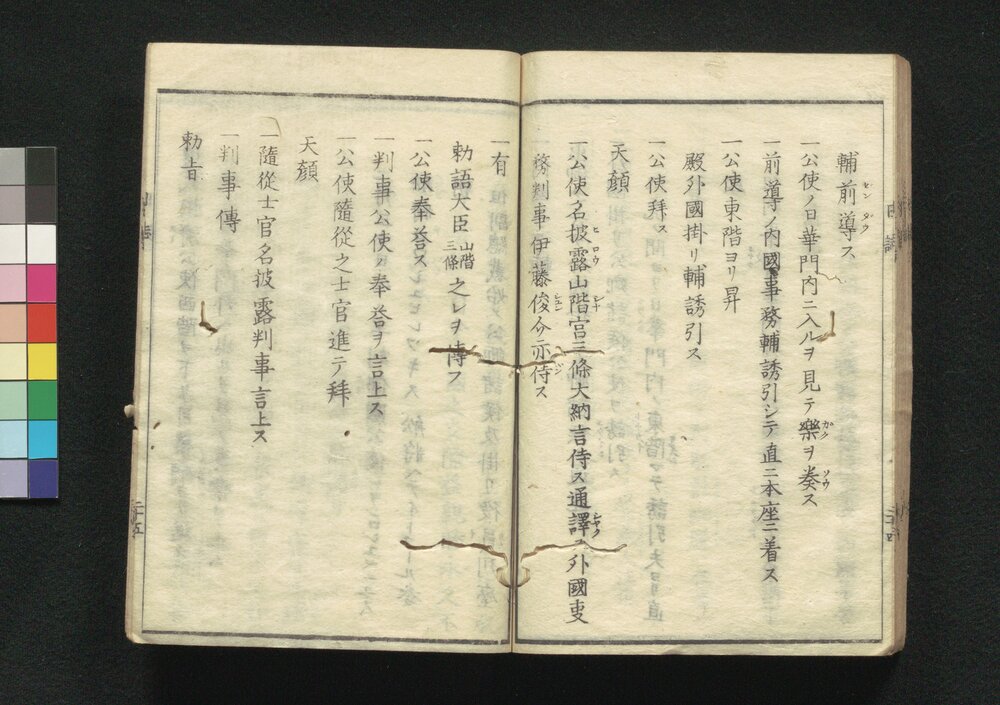 輔前導ス
一公使ノ日華門內ニ入ルヲ見テ樂ヲ奏ス
一前導ノ内國事務輔誘引シテ直ニ本座ニ着ス
一公使東階ヨリ昇
殿外國掛リ輔誘引ス
一公使拜ス
天顏
一公使名披露山階宮三條大納言侍ス通譯ハ外國叓
務判事伊藤俊介亦侍ス
一有
勅語大臣山階三條之レヲ傳フ
一公使奉荅ス
一判事公使ノ奉荅ヲ言上ス
一公使隨從之士官進テ拜
天顏
一隨從士官名披露判事言上ス
一判事傳
勅旨
二十五